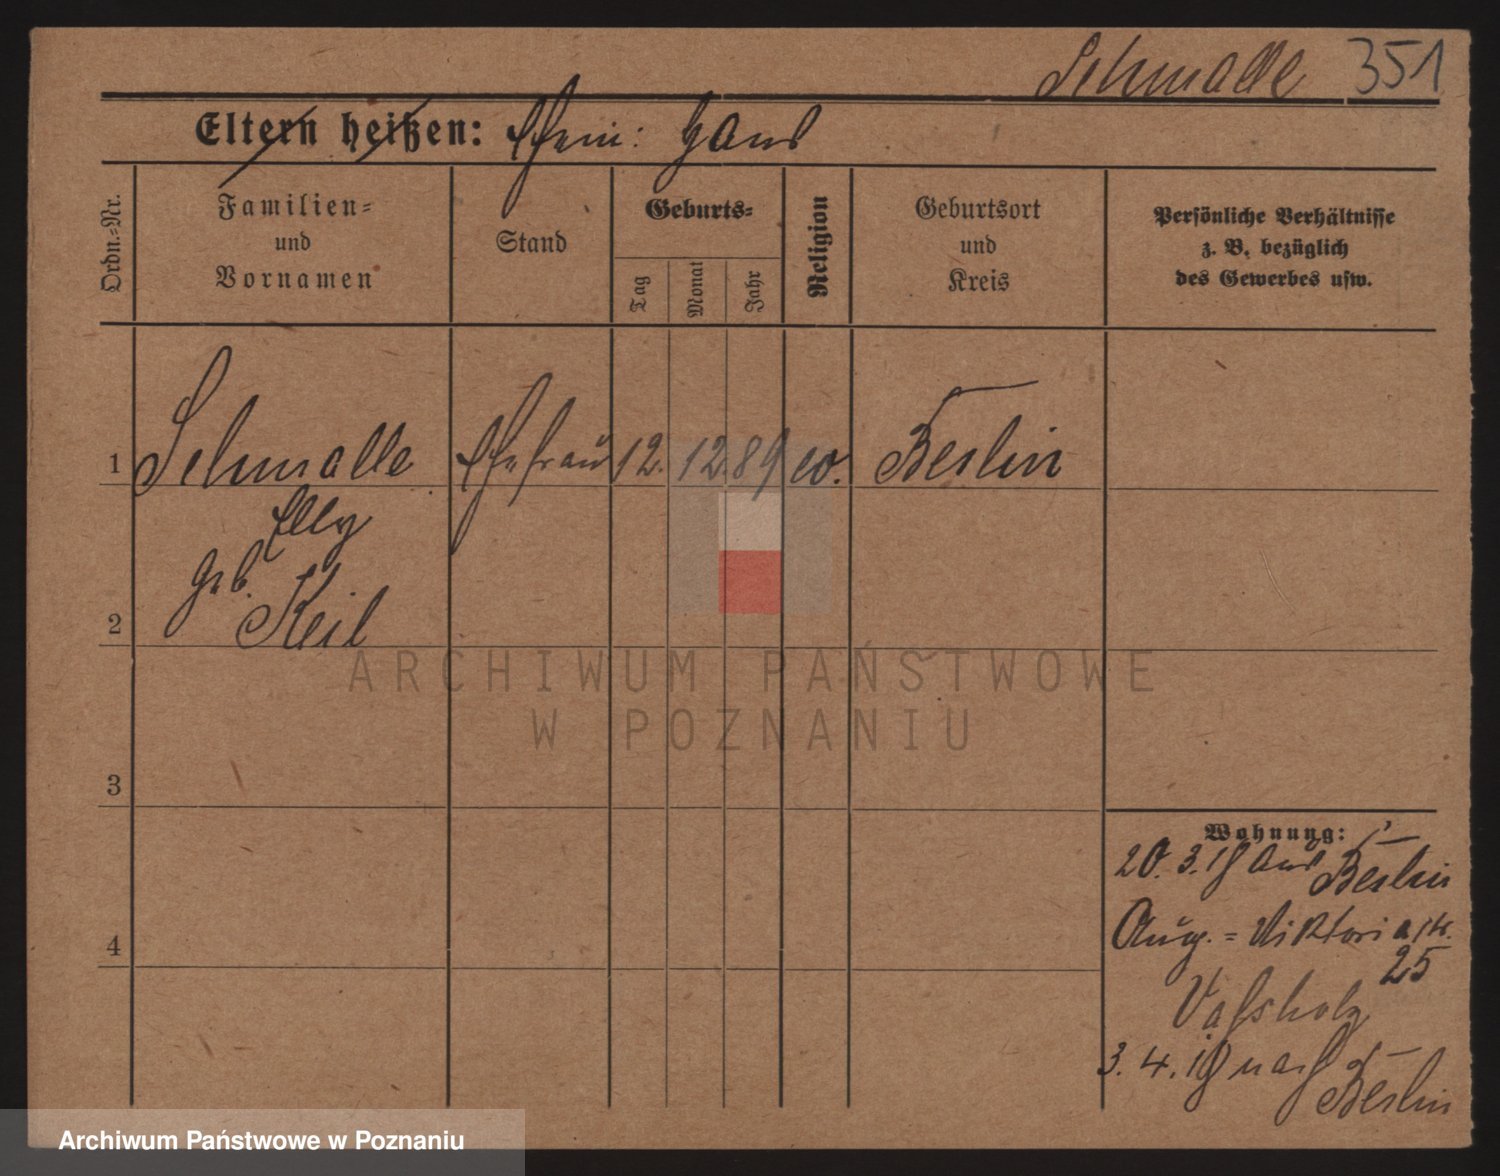 Schmalle 351
Eltern heißen: Ehem: Hans
Ordn.-Nr.
Familien-
und
Vornamen
Stand
Geburts-
Tag
Monat
Jahr
Religion
Geburtsort
und
Kreis
Persönliche Verhältnisse
z. B. bezüglich
des Gewerbes usw.
1 Schmalle Ehefrau 12. 12. 89 ev. Berlin
Elly
geb.
2 Keil
3
4
Wohnung:
20. 3. 18 aus Berlin
Aug. = Viktoriastr.
25
3. 4. 18 nach
Berlin
ARCHIWUM PAŃSTWOWE
W POZNANIU
Archiwum Państwowe w Poznaniu